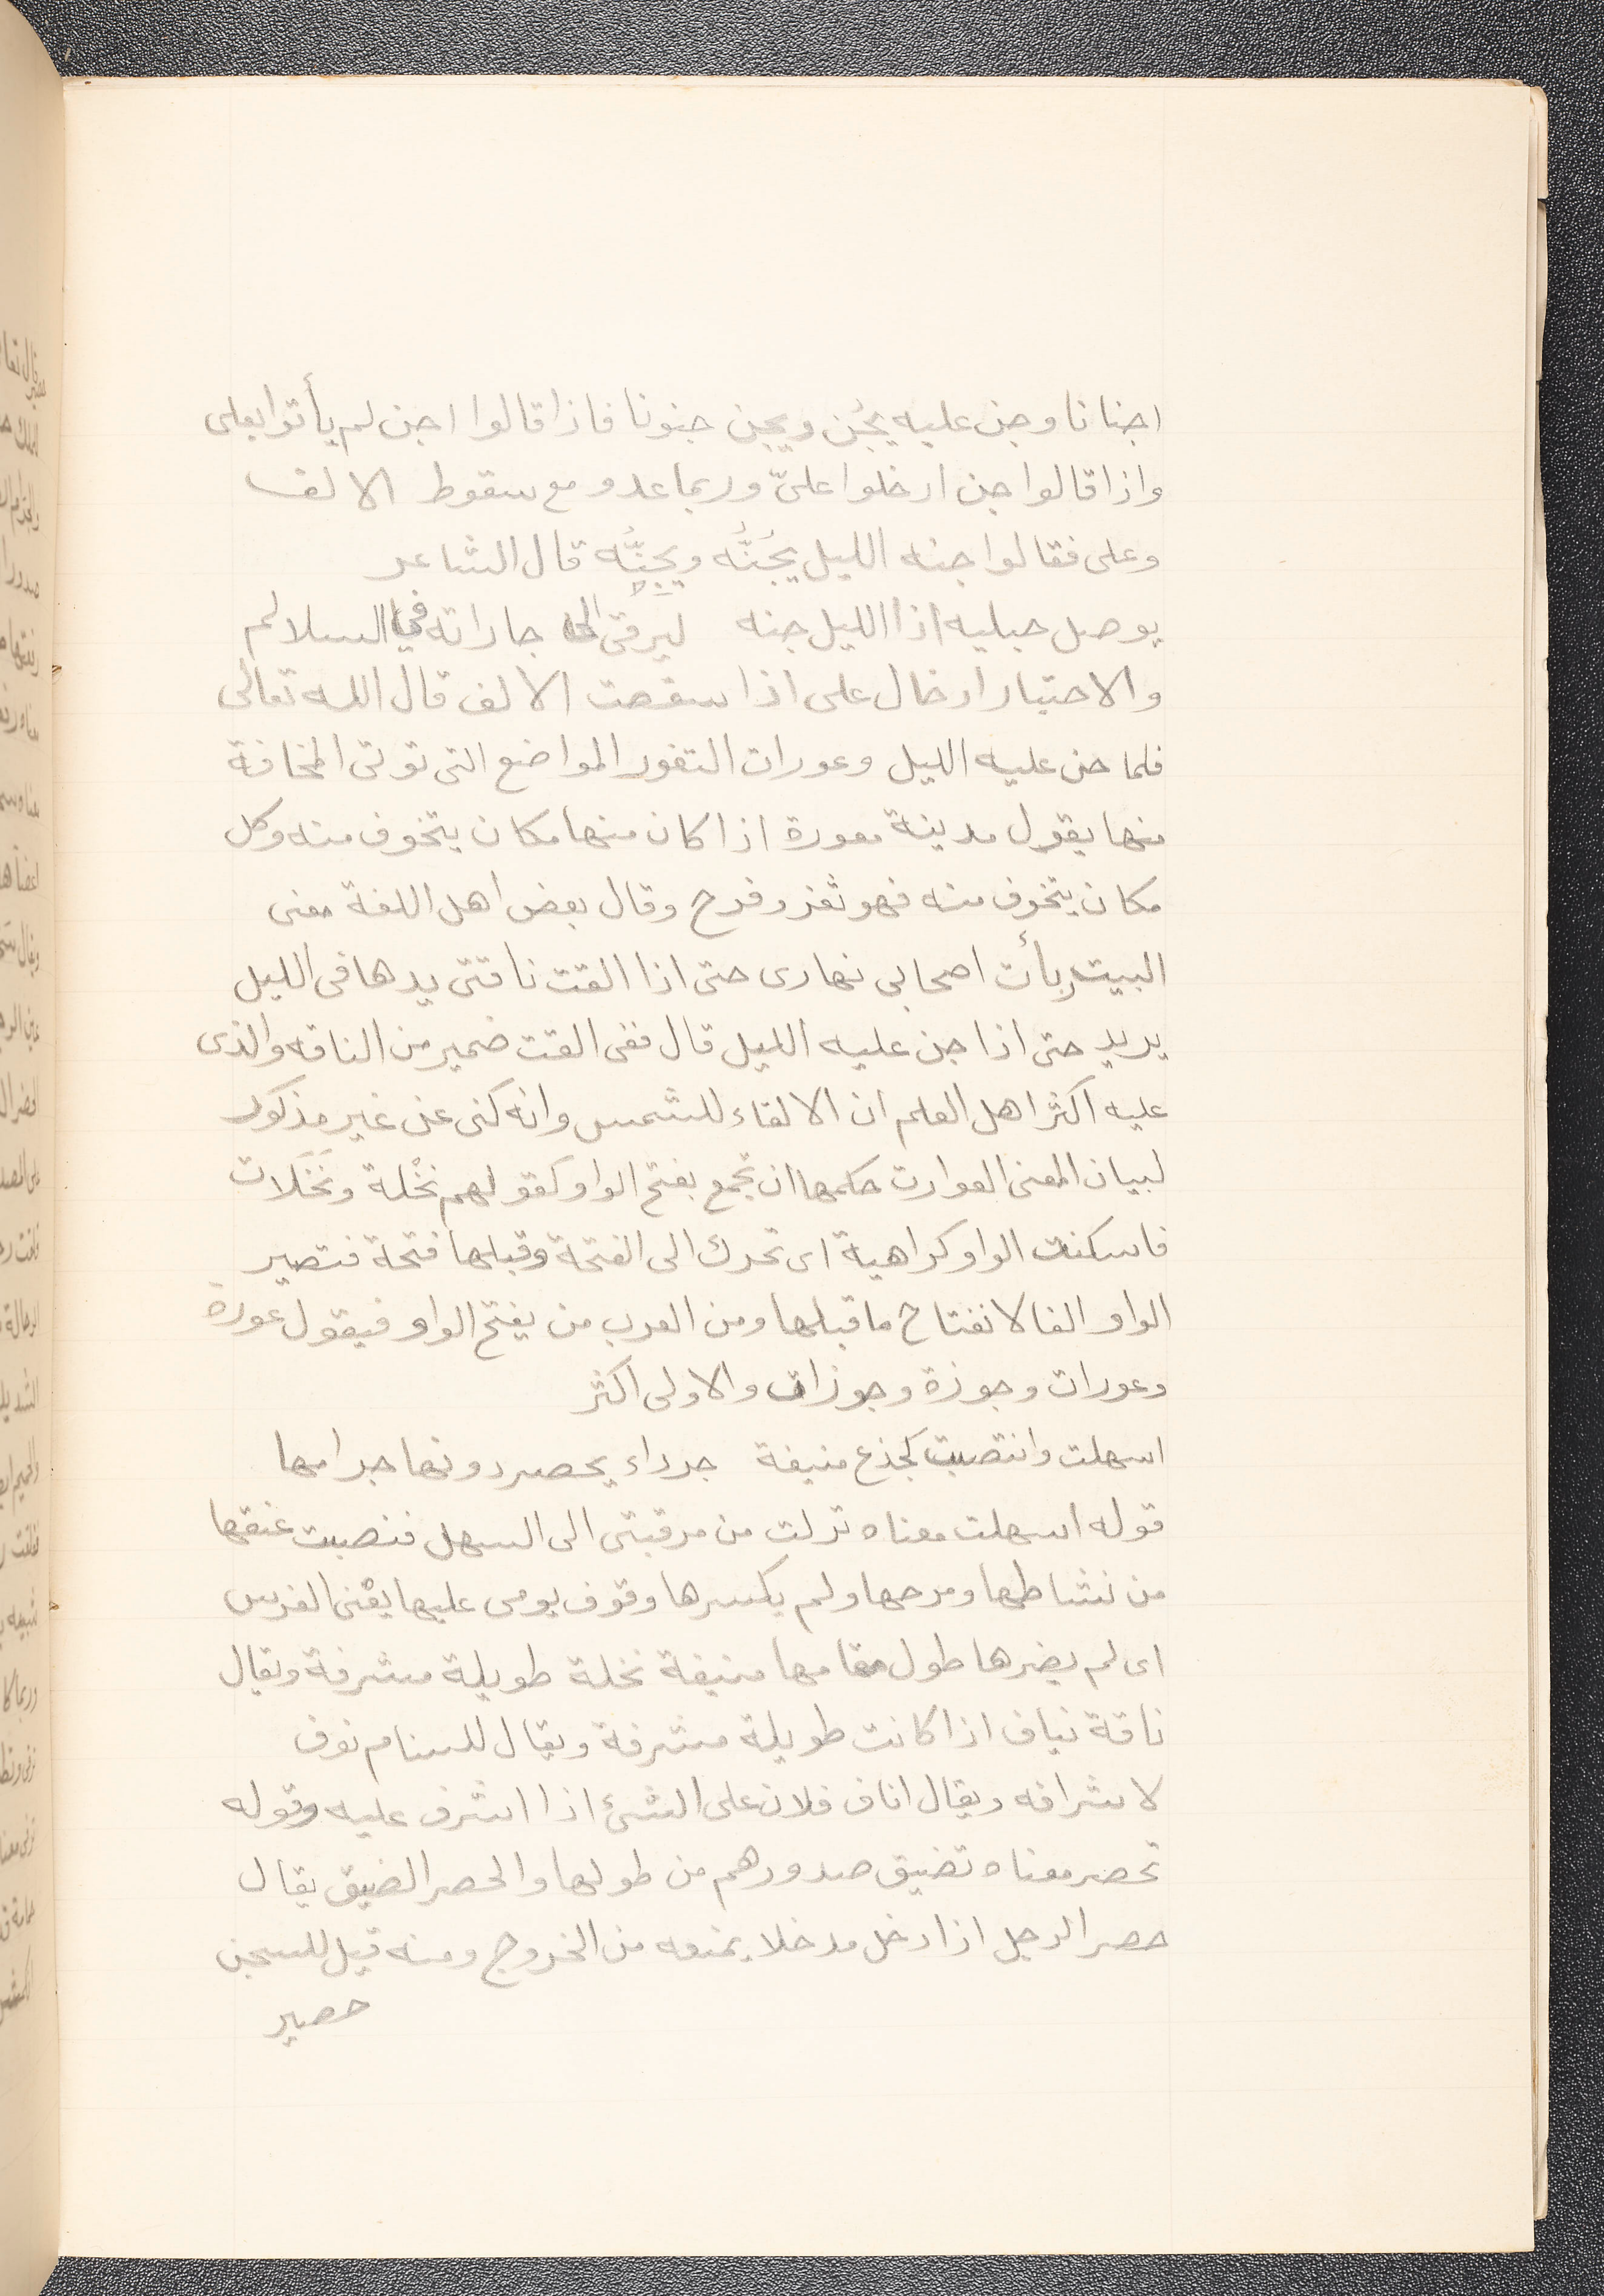 اجنانا وجن عليه يجُن ويجِن جنونا فاذا قالوا اجن لم يأتوا بعلى
واذا قالوا جن ادخلوا علىّ وربما عدو مع سقوط الالف
وعلى فقالوا جنه الليل يجُنُّه ويجِنُّه قال الشاعر
يوصل حبليه اذا الليل جنه ليرقى الى جاراته فى السلالم
والاختيار ادخال على اذا سقطت الالف قال الله تعالى
فلما جن عليه الليل وعورات الثغور المواضع التى توتى المخافة
منها يقول مدينة معورة اذا كان منها مكان يتخوف منه وكل
مكان يتخوف منه فهو ثغر وفرج وقال بعض اهل اللغة معنى
البيت ربأت اصحابى نهارى حتى اذا القت ناقتى يدها فى الليل
يريد حتى اذا جن عليه الليل قال ففى القت ضمير من الناقه والذى
عليه اكثر اهل العلم ان الالقاء للشمس وانه كنى عن غير مذكور
لبيان المعنى العوارت حكمها ان تجمع بفتح الواو كقولهم نخْلة ونَخَلات
فاسكنت الواو كراهية اى تحرك الى الفتحة وقبلها فتحة فتصير
الواو الفا لانفتاح ما قبلها ومن العرب من يفتح الواو فيقول عورة
وعورات وجوزة وجوزات والاولى اكثر
اسهلت وانتصبت كجذع منيفة جرداء يحصر دونها جرامها
قوله اسهلت معناه نزلت من مرقبتى الى السهل فنصبت عنقها
من نشاطها ومرحها ولم يكسرها وقوف يومى عليها يعنى الفرس
اى لم يضرها طول مقامها منيفة نخلة طويلة مشرفة ويقال
ناقة نياف اذا كانت طويلة مشرفة ويقال للسنام نوف
لاشرافه ويقال اناف فلان على الشئ اذا اشرف عليه وقوله
تحصر معناه تضيق صدورهم من طولها والحصر الضيق يقال
حصر الرجل اذا دخل مدخلا يمنعه من الخروج ومنه قيل للسجن
حصير